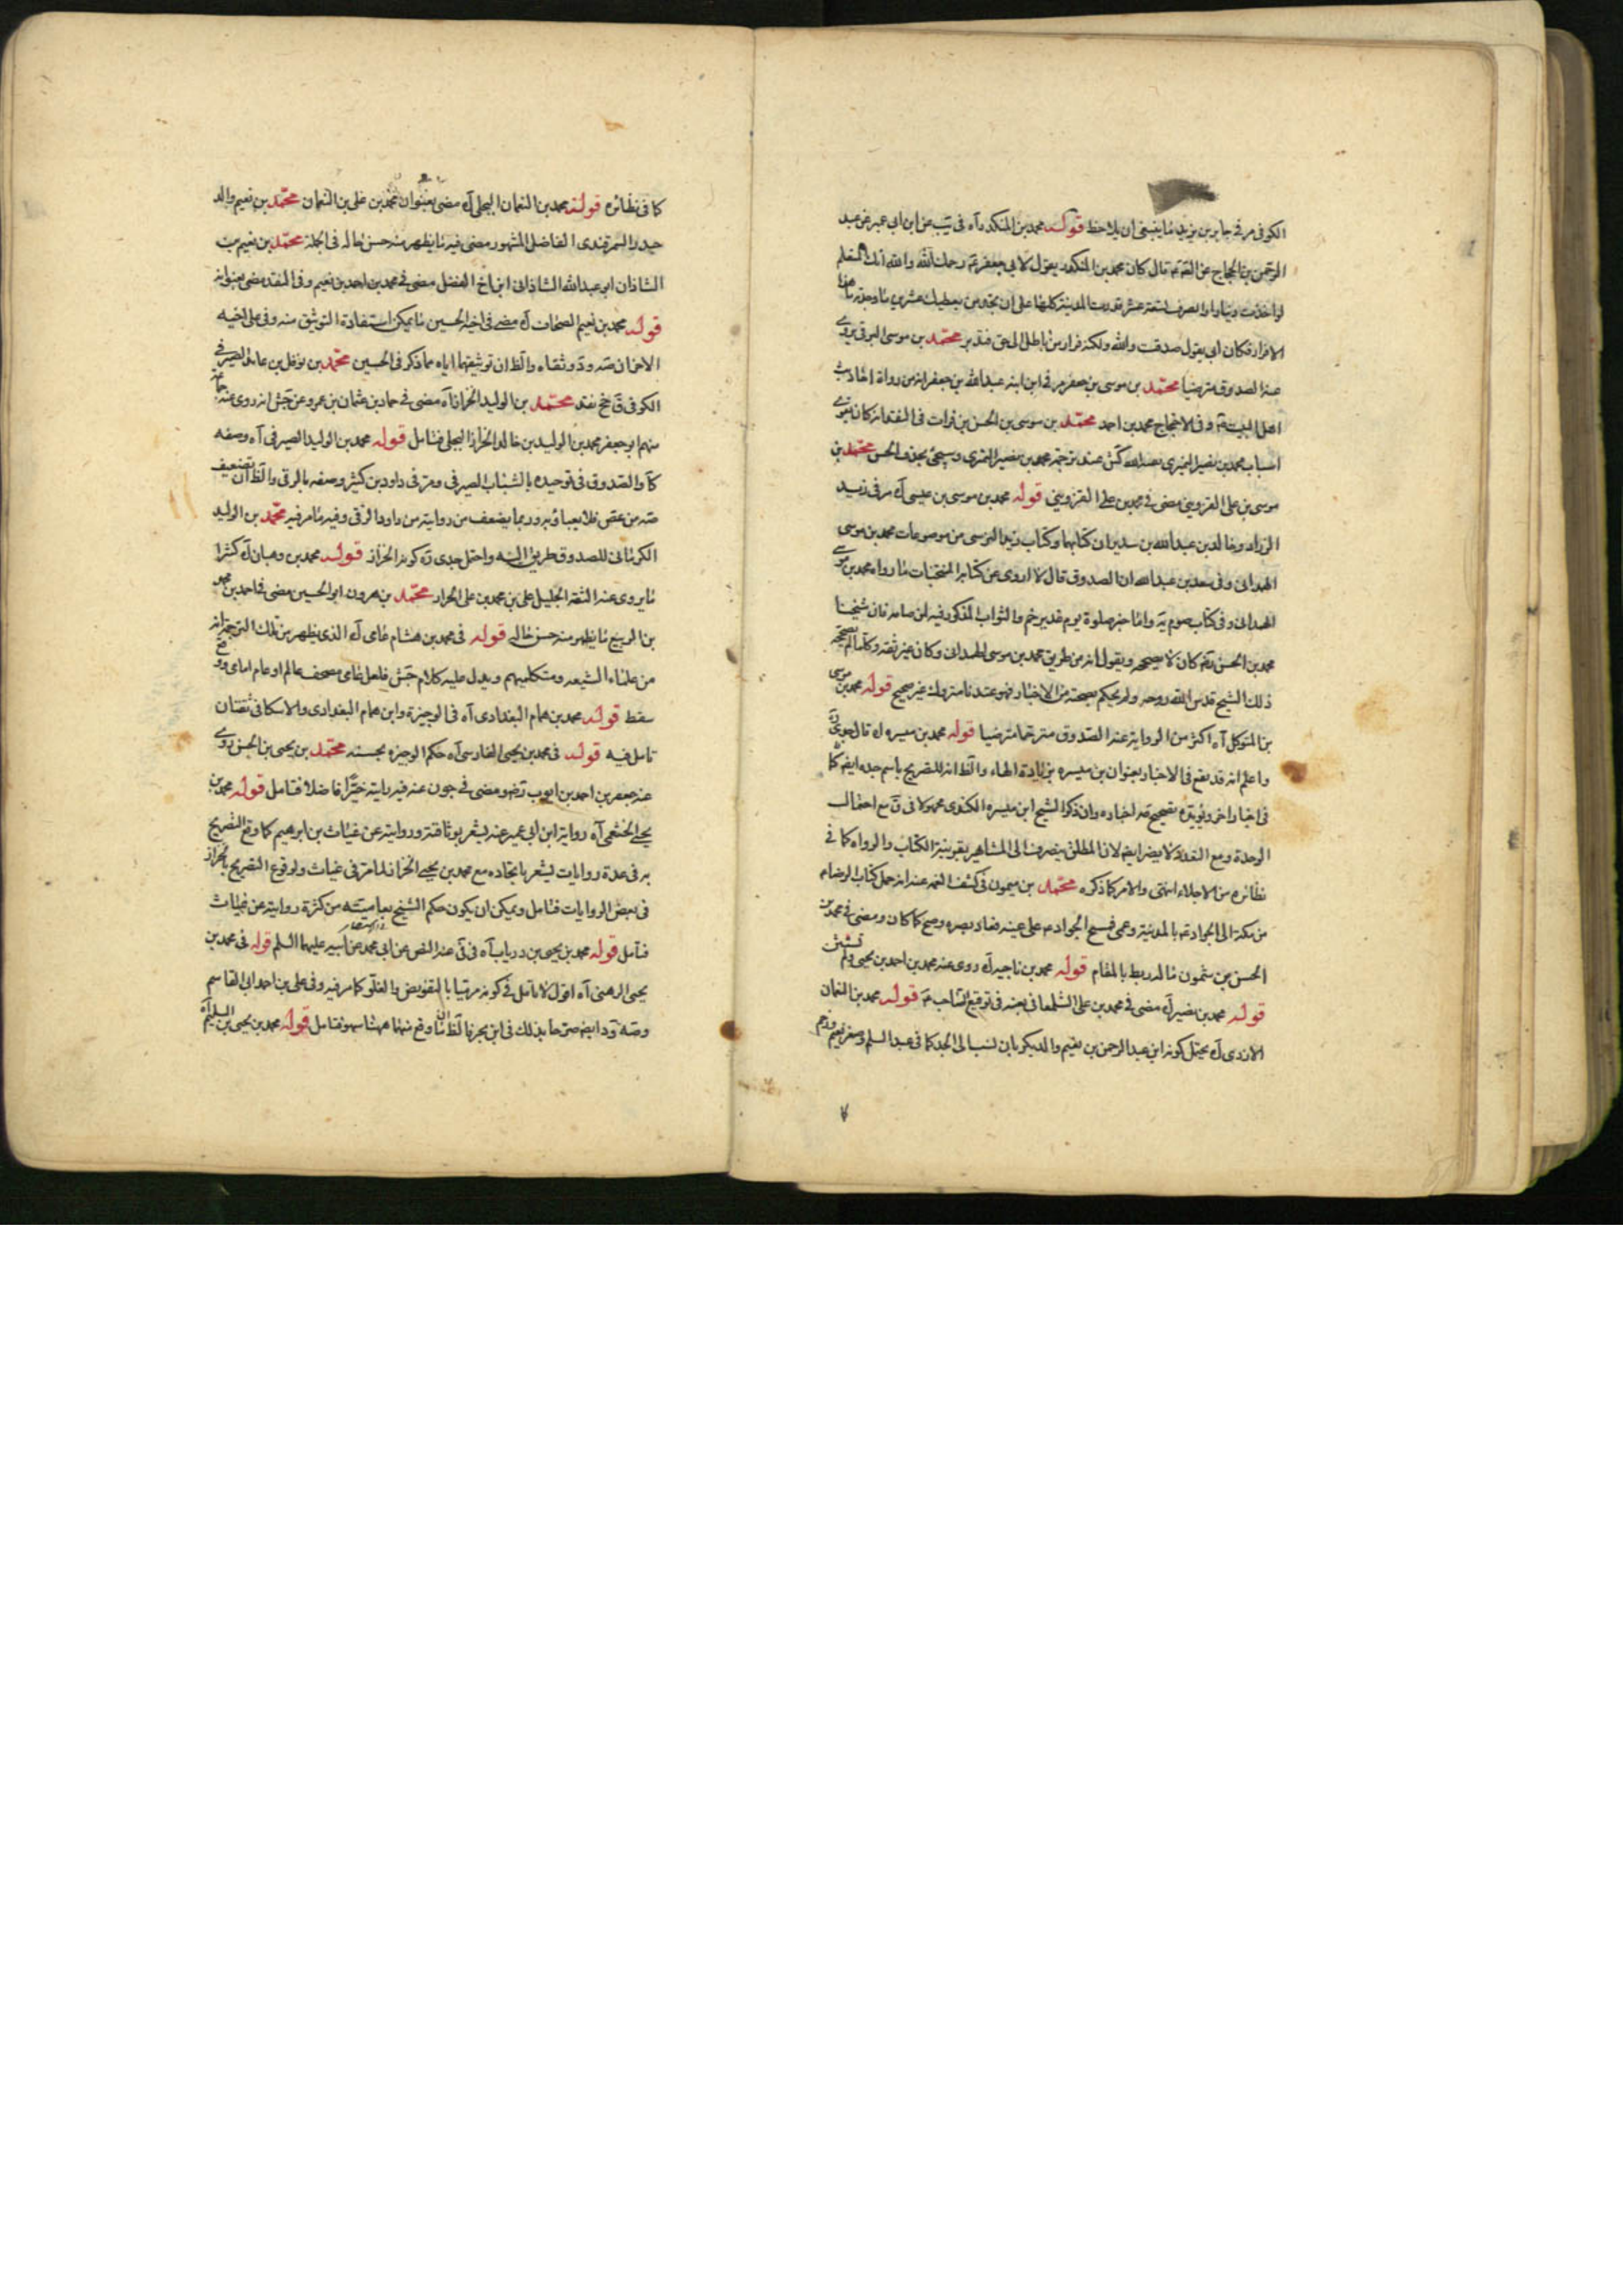 الكوفى مر فى جابر بن يزيد ما ينبغى ان يلاحظ قوله محمد بن المنكدر آه فى يب عن ابن ابى عمير عن عبد
الرحمن بن الحجاج عن القم قال كان محمد بن المنكدر يقول لابى جعفر عم رحمك الله والله انك لتعلم
لو اخذت دينارا والصرف بتسعة عشر فدرت المدينة كلها على ان تجد من يعطيك عشرين ما وجدته ما هذا
الا فرار فكان ابى يقول صدقت والله ولكنه فرار من باطل الى حق فتدبر محمد بن موسى البرقى يروى
عنه الصدوق مترضيا محمد بن موسى بن جعفر مر فى ابن ابنه عبد الله بن جعفر انه من رواة احاديث
اهل البيت عم وفى الاحتجاج محمد بن احمد محمد بن موسى بن الحسن بن فرات فى النقد انه كان يقوى
اسباب محمد بن نصير النميرى لعنه الله كش عند ترجمة محمد بن نصير النميرى وسيجئ بحذف الحسن محمد بن
موسى بن على القزوينى مضى فى محمد بن على القزوينى قوله محمد بن موسى بن عيسى آه مر فى زيد
الزراد وخالد بن عبد الله بن سدير ان كتابهما وكتاب زيد النرسى من موضوعات محمد بن موسى
الهمدانى وفى سعد بن عبد الله ان الصدوق قال لا اروى عن كتابه المنتخبات ما رواه محمد بن موسى
الهمدانى وفى كتاب صوم يه واما خبر صلوة يوم غدير خم والثواب المذكور فيه لمن صامه فان شيخنا
محمد بن الحسن رضه كان لا يصححه ويقول انه من طريق محمد بن موسى الهمدانى وكان غير ثقة وكلما لم يصححه
ذلك الشيخ قدس الله روحه ولم يحكم بصحته من الاخبار فهو عندنا متروك غير صحيح قوله محمد بن موسى
بن المتوكل آه اكثر من الرواية عنه الصدوق مترحما مترضيا قوله محمد بن ميسره آه قال جدى ره
واعلم انه قد يقع فى الاخبار بعنوان بن ميسره بزيادة الهاء والظ انه للتصريح باسم جده ايضم كما
فى اخبار اخر ويؤيده تصحيح مه اخباره وان ذكر الشيخ ابن ميسره الكندى مجهولا فى ق مع احتمال
الوحدة ومع التعدد لا يضر ايضم لان المطلق ينصرف الى المشاهير بقرينة الكتاب والرواه كما فى
نظائره من الاجلاء انتهى والامر كما ذكره محمد بن ميمون فى كشف الغمه عنه انه حمل كتاب الرضا عم
من مكة الى الجواد عم بالمدينة وعمى فمسح الجواد عم على عينه فعاد بصره وصح كما كان ومضى فى محمد بن
الحسن بن شمون ما له ربط بالمقام قوله محمد بن ناجيه آه روى عنه محمد بن احمد بن يحيى ولم تستثن
قوله محمد بن نصير آه مضى فى محمد بن على الشلمغانى لعنه فى توقيع الصاحب عم قوله محمد بن النعمان
الازدى آه يحتمل كونه ابن عبد الرحمن بن نعيم والد بكر بان نسب الى الجد كما فى عبد السلم وصفر نعيم
كما فى نظائره قوله محمد بن النعمان البجلى آه مضى بعنوان محمد بن على بن النعمان محمد بن نعيم والد
حيدر السمرقندى الفاضل المشهور مضى فيه ما يظهر منه حسن حاله فى الجملة محمد بن نعيم بن
الشاذان ابو عبد الله الشاذانى ابن اخ الفضل مضى فى محمد بن احمد بن نعيم وفى النقد مضى بعنوانه
قوله محمد بن نعيم الصحاف آه مضى فى اخيه الحسين ما يمكن استفادة التوثيق منه وفى على اخيه
الاخر ان صه ود وثقاه والظ ان توثيقهما اياه مما ذكر فى الحسين محمد بن نوفل بن عائذ الصيرفى
الكوفى ق خ نقد محمد بن الوليد الخزاز آه مضى فى حماد بن عثمان بن عمرو عن جش انه روى عنه جماعة
منهم ابو جعفر محمد بن الوليد بن خالد الخزاز البجلى فتامل قوله محمد بن الوليد الصيرفى آه وصفه
كا والصدوق فى توحيده بالشباب الصيرفى ومر فى داود بن كثير وصفه بالرقى والظ ان تضعيف
صه من غض فلا يعبا به وربما يضعف من روايته من داود الرقى وفيه ما مر فيه محمد بن الوليد
الكرمانى للصدوق طريق اليه واحتمل جدى ره كونه الخزاز قوله محمد بن وهبان آه كثيرا
ما يروى عنه الثقة الجليل على بن محمد بن على الخزاز محمد بن هرون ابو الحسين مضى فى احمد بن محمد
بن الربيع ما يظهر منه حسن حاله قوله فى محمد بن هشام عامى آه الذى يظهر من تلك الترجمة انه
من علماء الشيعه ومتكلميهم ويدل عليه كلام جش فلعل عامى مصحف عالم او عام امامى ووقع
سقط قوله محمد بن همام البغدادى آه فى الوجيزة وابن همام البغدادى والاسكافى ثقتان
تامل فيه قوله فى محمد بن يحيى الفارسى آه حكم الوجيزه بحسنه محمد بن يحيى بن الحسن روى
عنه جعفر بن احمد بن ايوب رضه ومضى فى جون عنه فيه رايته خيرا فاضلا فتامل قوله محمد بن
يحيى الخثعمى آه رواية ابن ابى عمير عنه يشعر بوثاقته وروايته عن غياث بن ابرهيم كما وقع التصريح
به فى عدة روايات يشعر باتحاده مع محمد بن يحيى الخزاز لما مر فى غياث ولوقوع التصريح بالخزاز
فى بعض الروايات فتامل ويمكن ان يكون حكم الشيخ بعاميته من كثرة روايته عن غياث
فتامل قوله محمد بن يحيى بن درياب آه فى فى عنه النص عن ابى محمد عن ابيه عليهما السلم قوله فى محمد بن
يحيى الرهنى آه اقول لا تامل فى كونه مرتبا بالتفويض والغلو كما مر فيه وفى على بن احمد ابى القاسم
وصه ود ايضم صرحا بذلك فى ابن بحر فالظ ان ما وقع منهما ههنا سهو فتامل قوله محمد بن يحيى بن السليم آه